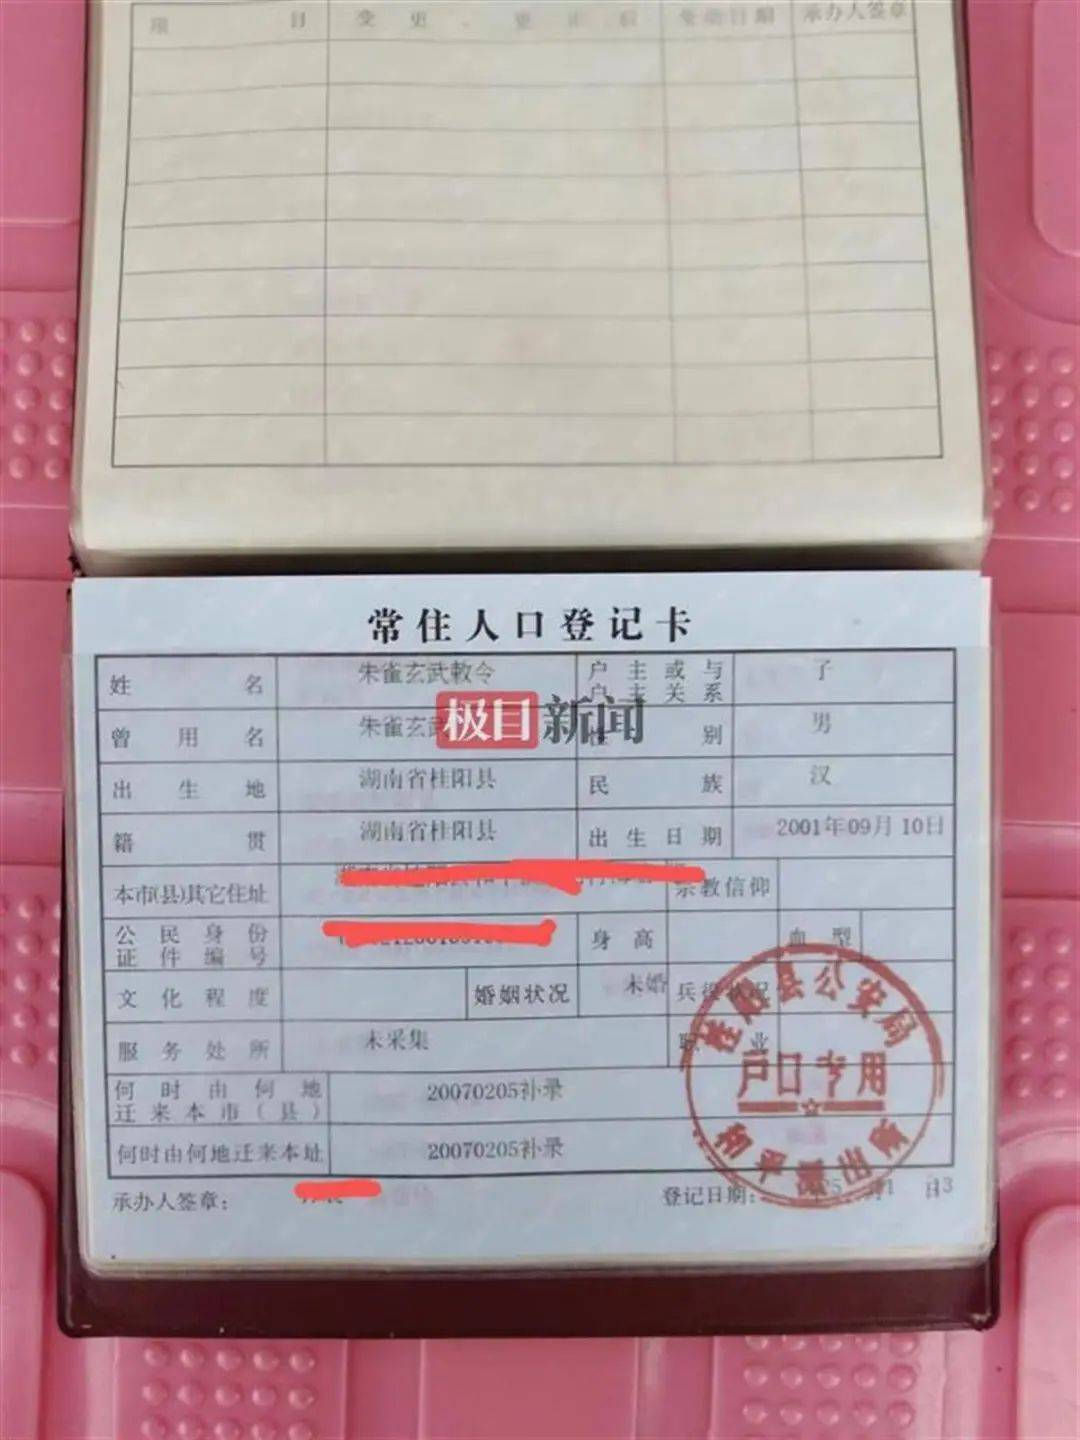 项 目 变 更 、 更 正 后 变动日期 承办人签章
常住人口登记卡
姓 名 朱雀玄武敕令 户主或与户主关系 子
曾 用 名 朱雀玄武 性 别 男
极目新闻
出 生 地 湖南省桂阳县 民 族 汉
籍 贯 湖南省桂阳县 出生日期 2001年09月10日
本市(县)其它住址 宗教信仰
公民身份证件编号 身 高 血 型
文 化 程 度 婚姻状况 未婚 兵役状况
服 务 处 所 未采集 职 业
何时由何地迁来本市(县) 20070205补录
何时由何地迁来本址 20070205补录
承办人签章: 登记日期:
桂阳县公安局
户口专用